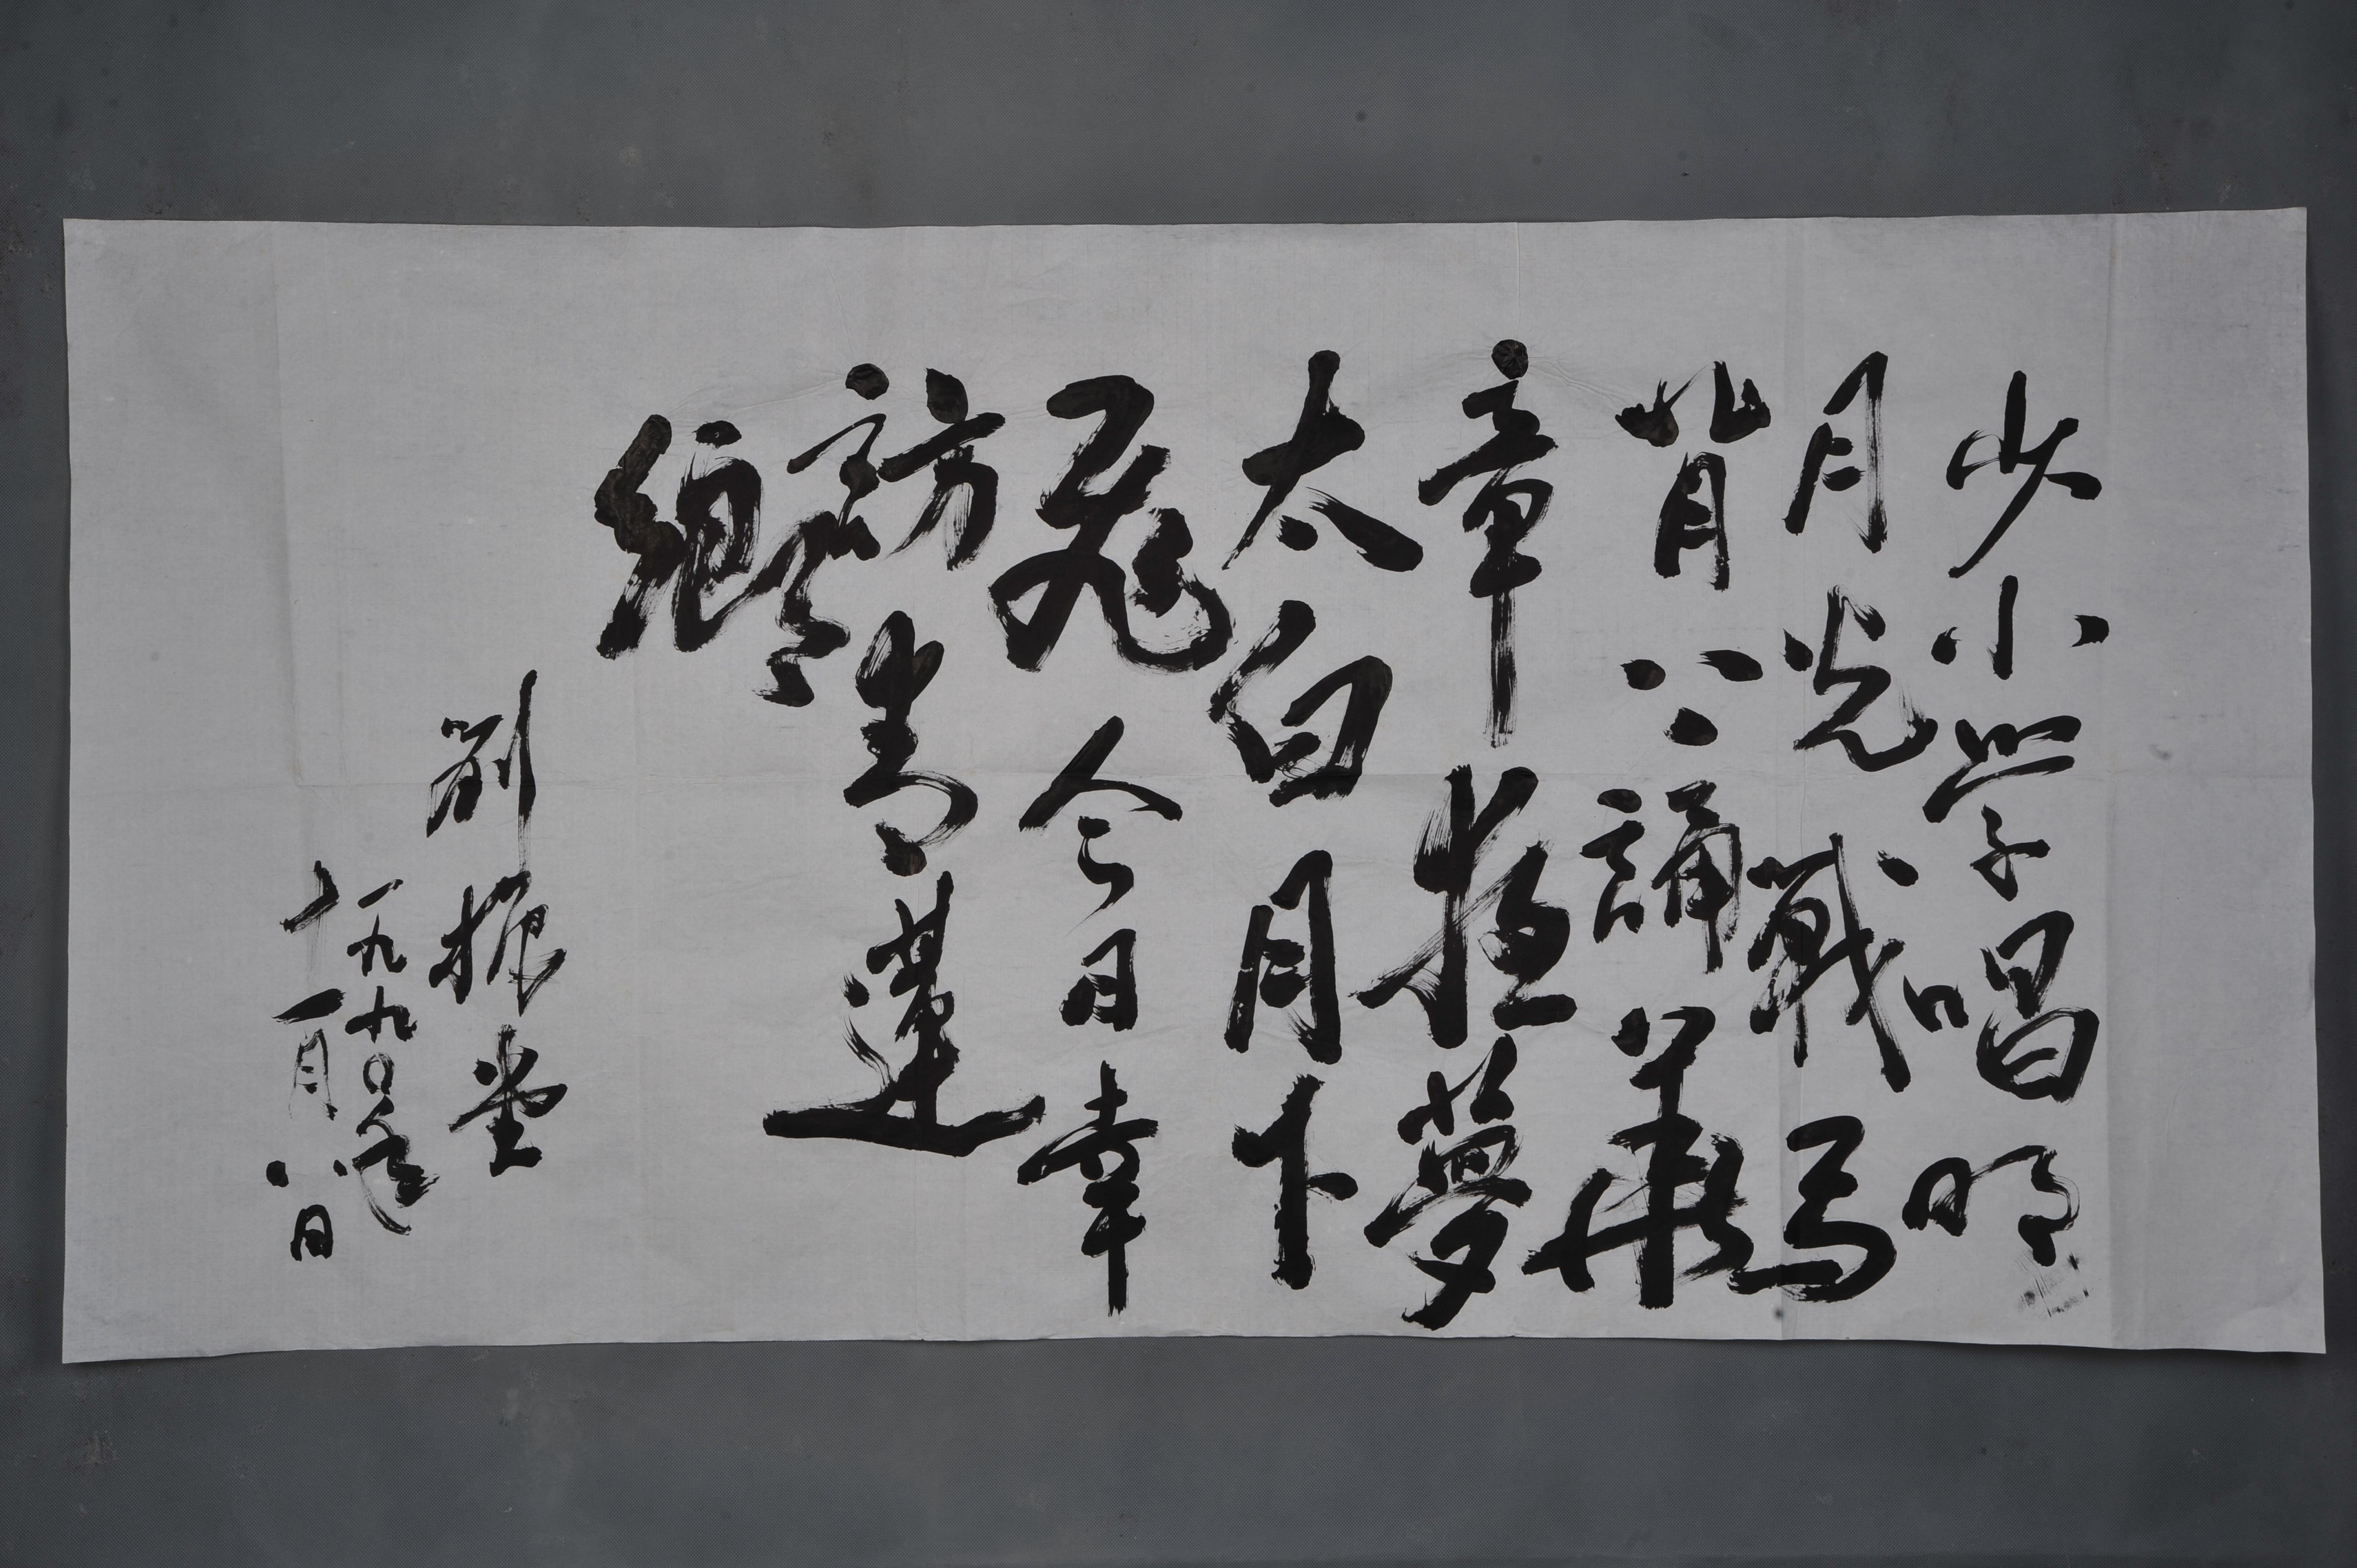 少小学唱明
月光戰馬
背上誦華
章夢
太白月下
飛今日幸
訪青蓮
鄉
劉振堂
一九九〇年
十一月八日